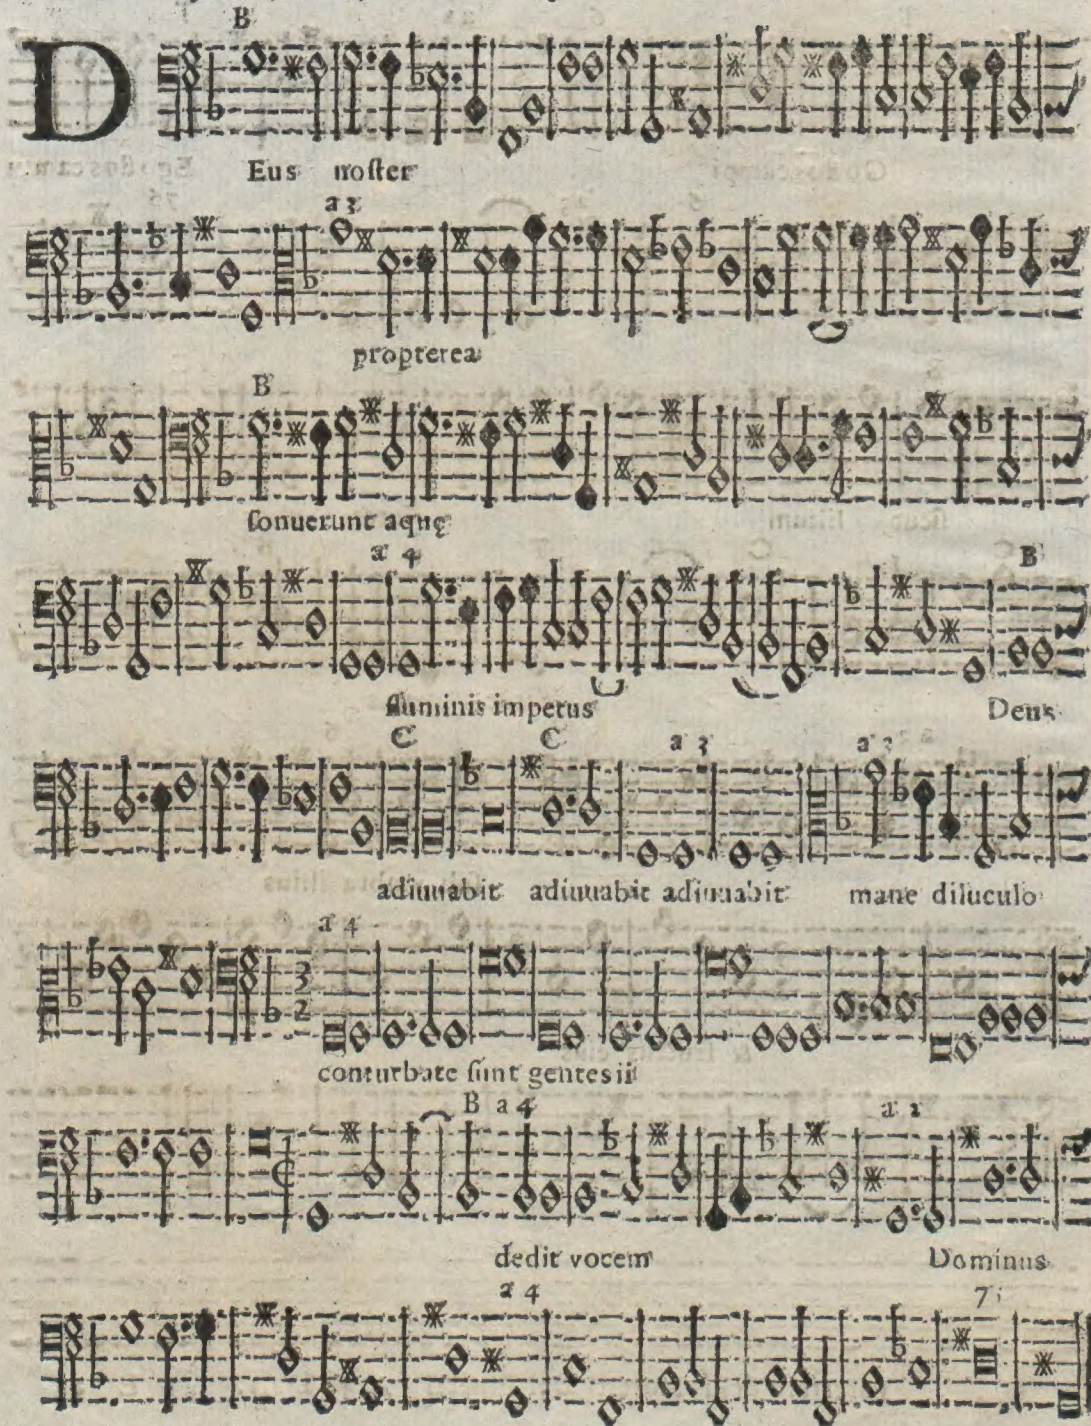 B
D
Eus noſter
a 3
propterea
B
ſonuerunt aquę
a 4 B
fluminis impetus Deus
C C a 3 a 3
adiuuabit adiuuabit adiuuabit mane diluculo
a 4
3
2
conturbate ſunt gentes ii
B a 4 a 2
dedit vocem Dominus
a 4 7